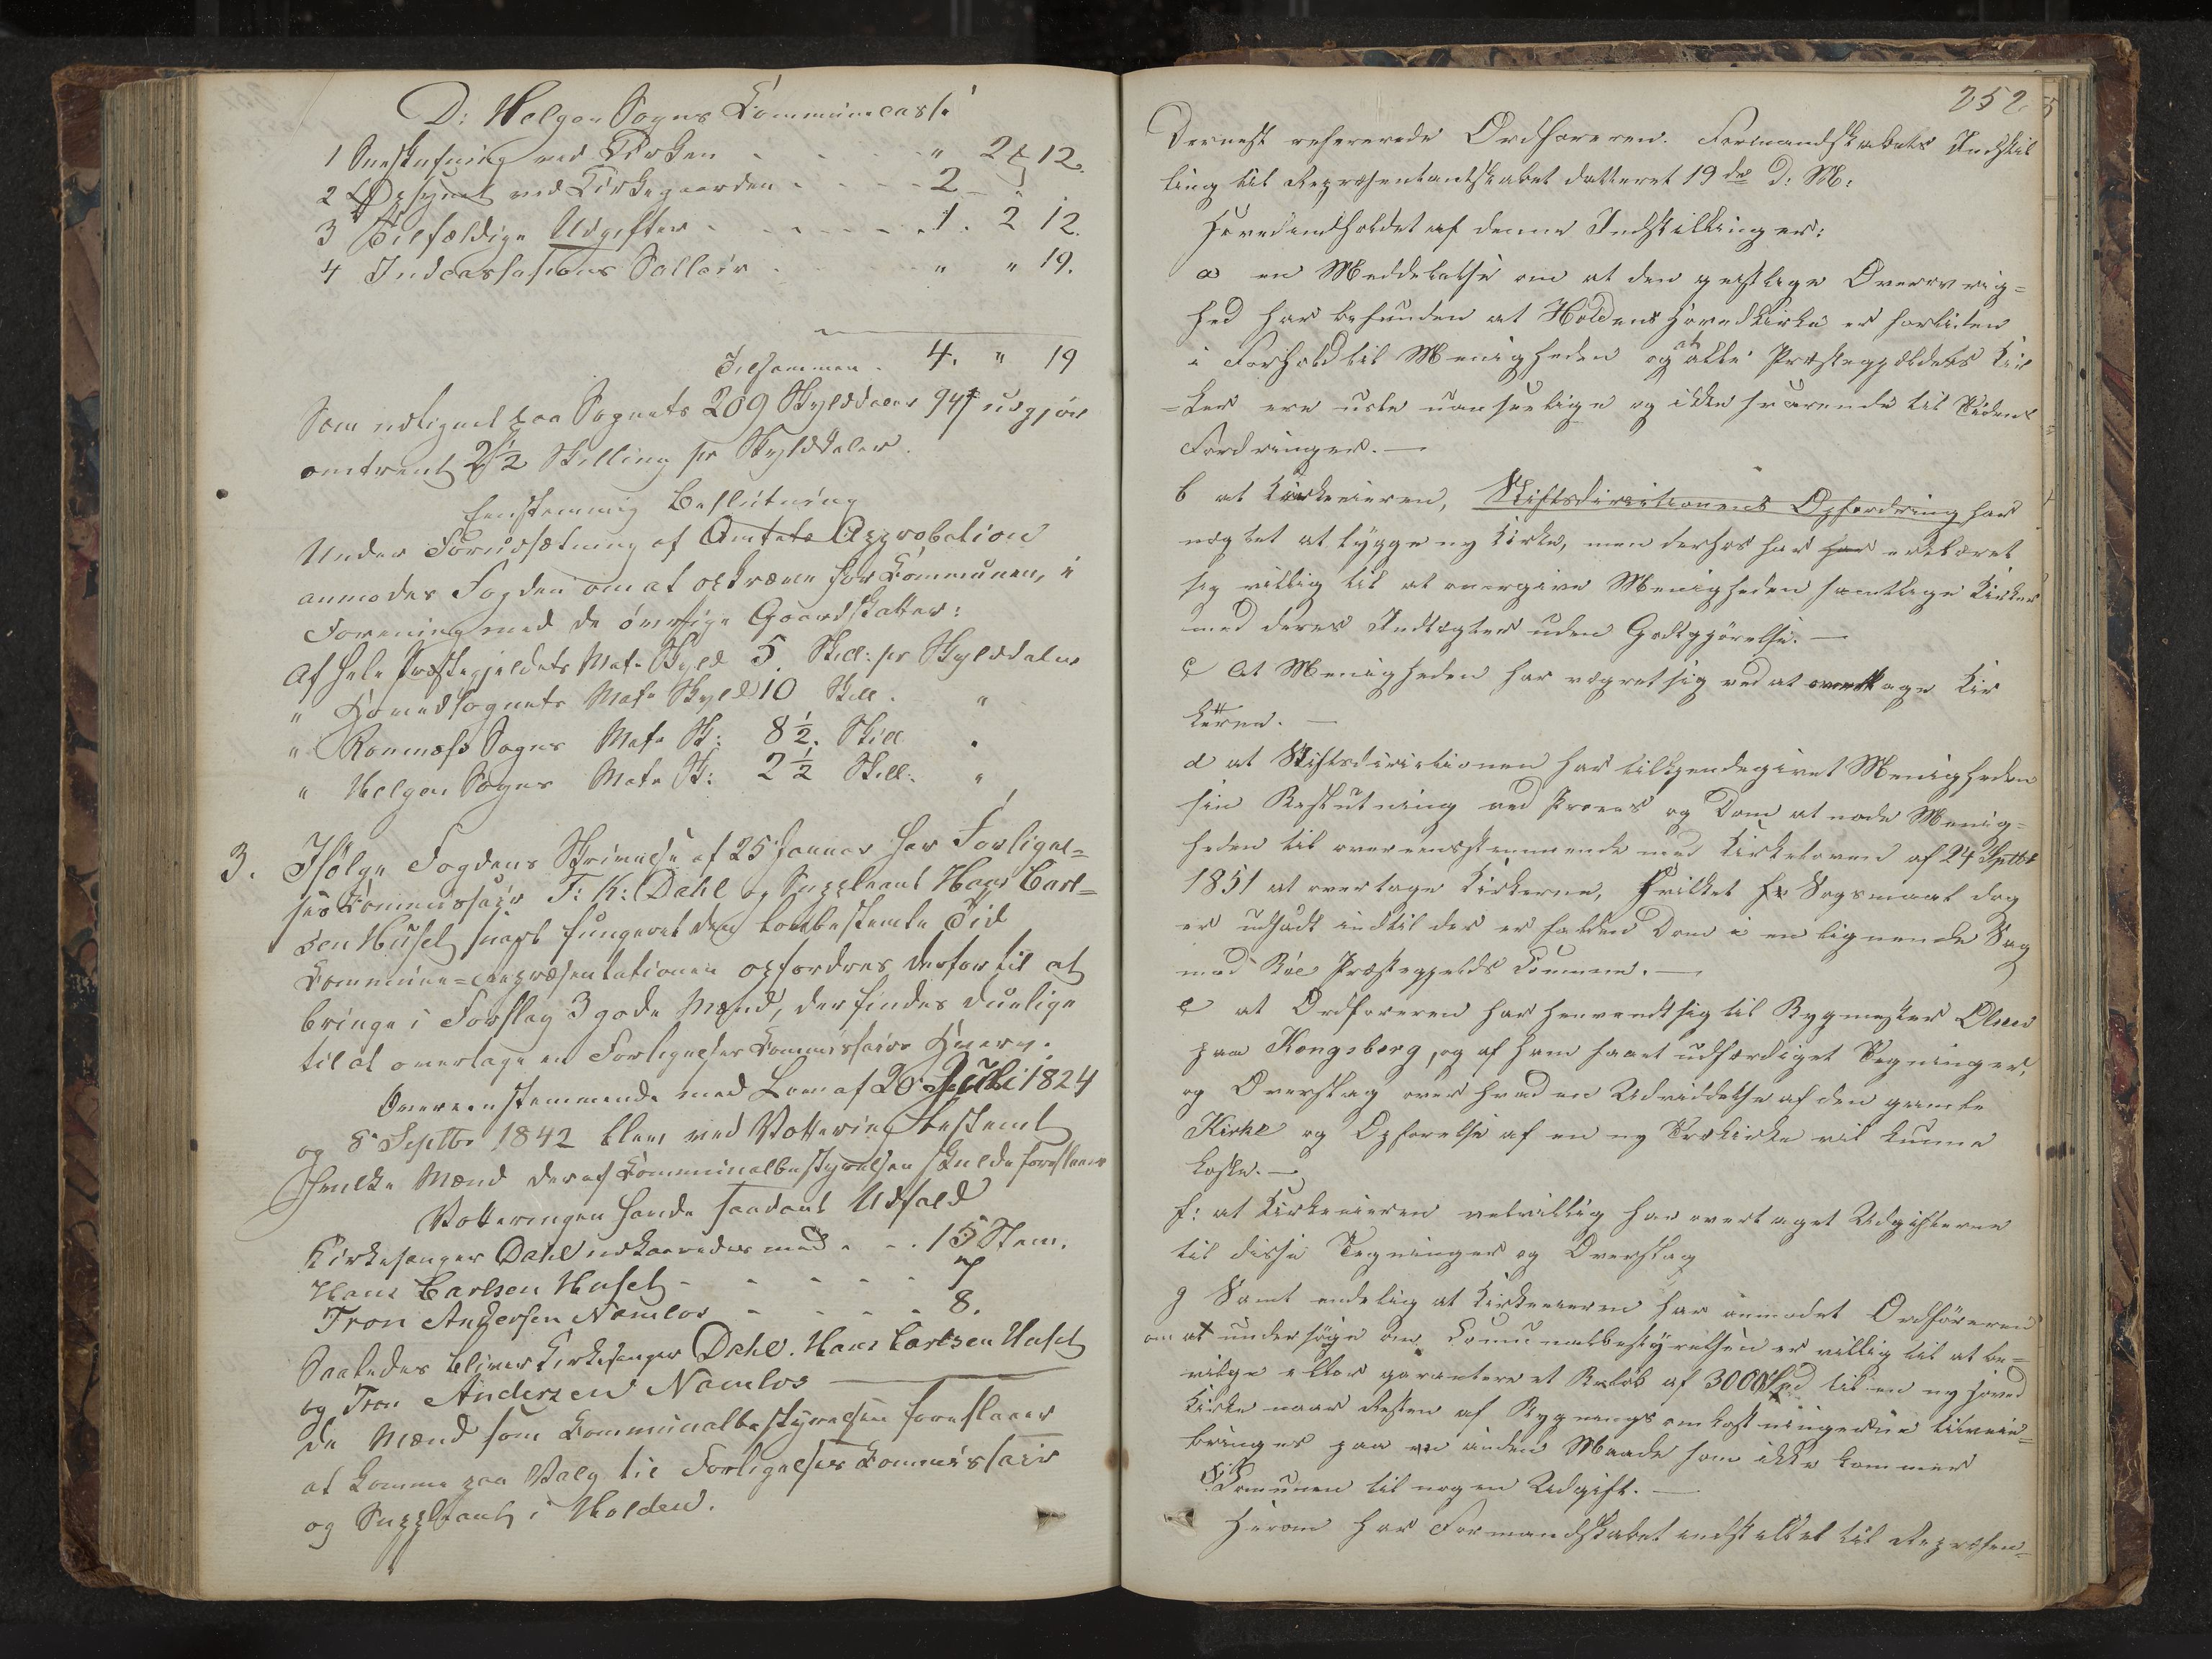 D: Helgen Sogns Communecasse
1 Sneskufning ved Kirken . . . . " 2 ʒ 12.
2 Opsynet ved Kirkegaarden . . . . 2 — "
3 Tilfældige Udgifter . . . . . . 1. 2 12.
4 Indcassations Sallair . . . . " " 19.
Tilsammen . 4. " 19
Som udlignet paa Sognets 209 Skylddaler 94 udgjør
omtrent 2½ Skilling pr Skylddaler.
Eenstemmig Beslutning
Under Forudsætning af Amtets Approbation
anmodes Fogden om at opkræve for Communen, i
Forening med de øvrige Gaardskatter:
Af hele Præstegjeldets Matr Skyld 5. Skill: pr Skylddaler
" Hovedsognets Matr Skyld 10 Skill. "
" Romnæss Sogns Matr Sk: 8½. Skill "
" Helgen Sogns Matr Sk: 2½ Skill: "
3. Ifølge Fogdens Skrivelse af 25 Januar har Forligel=
ses Commissair F: K: Dahl og Suppleant Hans Carl=
sen Huset snart fungeret den lovbestemte Tid
Commune=repræsentationen opfordres derfor til at
bringe i Forslag 3 gode Mænd, der findes duelige
til at overtage en Forligelses Commissairs Hverv.
Overeenstemmende med Lov af 20 Juli 1824
og 8 Septbr 1842 blev ved Vottering bestemt
hvilke Mænd der af Communalbestyrelsen skulde foreslaaes
Votteringen havde saadant Udfald
Kirkesanger Dahl udkaaredes med . . . 15 Stem.
Hans Carlsen Huset - - - - - 7
Tron Andersen Namlos - - - - 8.
Saaledes bliver Kirkesanger Dahl. Hans Carlsen Huset
og Tron Andersen Namlos
de Mænd som Communalbestyrelsen foreslaaer
at komme paa Valg til Forligelses Commissair
og Suppleant i Holden.
252
Dernest refererede Ordføreren. Formandskabets Indstil
ling til Repræsentantskabet datteret 19de d: M:
Hovedindholdet af denne Indstilling er:
a en Meddelelse om at den geistlige Øverøvrig=
hed har befunden at Holdens Hovedkirke er forliden
i Forhold til Menigheden og at alle Præstegjeldets Kir
=ker ere usle uanseelige og ikke svarende til Tidens
Fordringer. —
b at Kirkeeieren, Stiftsdirectionens Opfordring har
nægtet at bygge ny Kirke, men derhos har har erklæret
sig villig til at overgive Menigheden samtlige Kirker
med deres Indtægter uden Godtgjørelse. —
c At Menigheden har vægret sig ved at overtage Kir
kerne. —
d at Stiftsdirectionen har tilkjendegivet Menigheden
sin Beslutning ved Proces og Dom at nøde Menig=
heden til overeensstemmende med Kirkeloven af 24 Septbr
1851 at overtage Kirkerne, hvilket Søgsmaal dog
er udsadt indtil der er falden Dom i en lignende Sag
med Bøe Præstegjelds Commune. —
e at Ordføreren har henvendt sig til Bygmester Olsen
paa Kongsberg, og af ham faaet udfærdiget Tegninger,
og Overslag over hvad en Udviddelse af den gamle
Kirke og Opførelse af en ny Trækirke vil kunne
koste. —
f: at Kirkeeieren velvillig har overtaget Udgifterne
til disse Tegninger og Overslag
g Samt endelig at Kirkeeieren har anmodet Ordføreren
om at undersøge om Communalbestyrelsen er villig til at be=
vilge eller garantere et Beløb af 3000 Spd til en ny Hoved
Kirke naar Resten af Bygningsomkostningerne tilveie=
bringes paa en anden Maade som ikke kommer
Communen til nogen Udgift. —
Herom har Formandskabet indstillet til Repræsen=